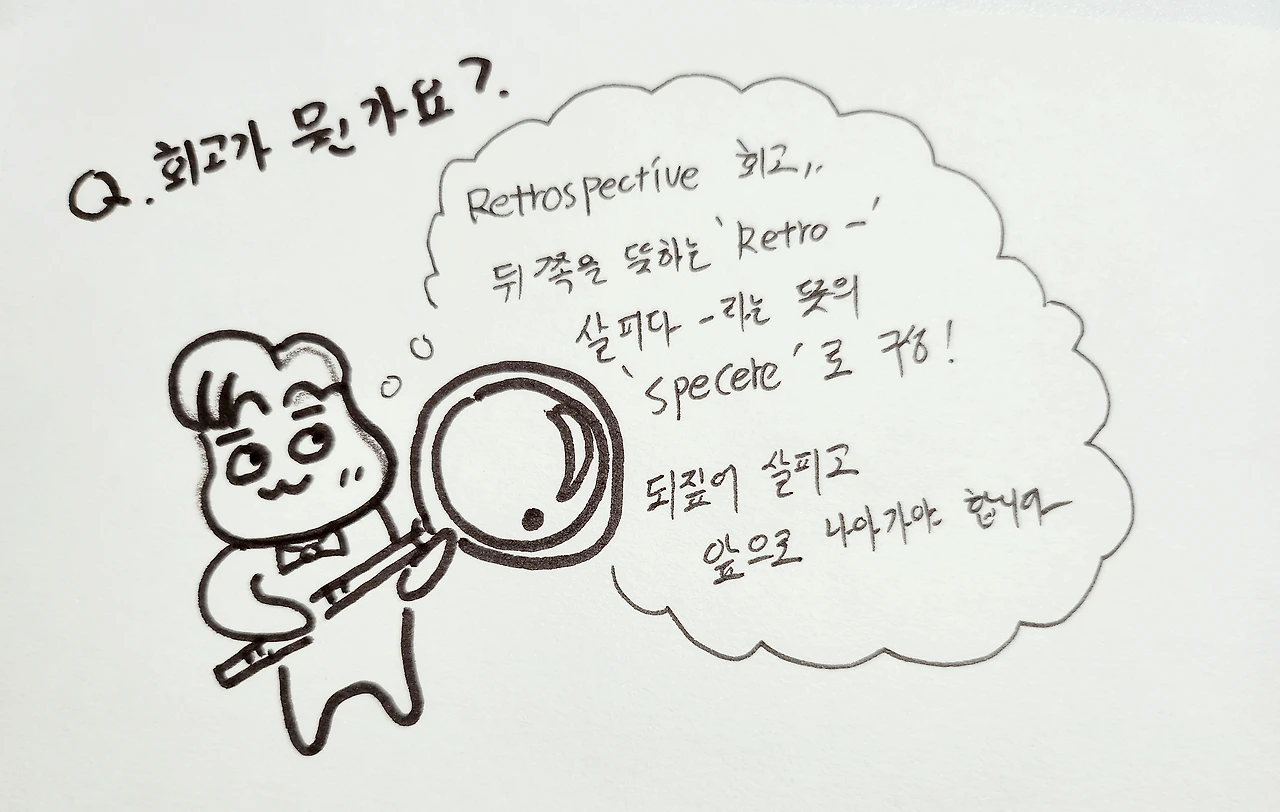 Q. 회고가 뭔가요?.
Retrospective 회고,..
뒤 쪽을 뜻하는 'Retro -'
살피다 -라는 뜻의
'specere'로 구성!
되짚어 살피고
앞으로 나아가야 합니다